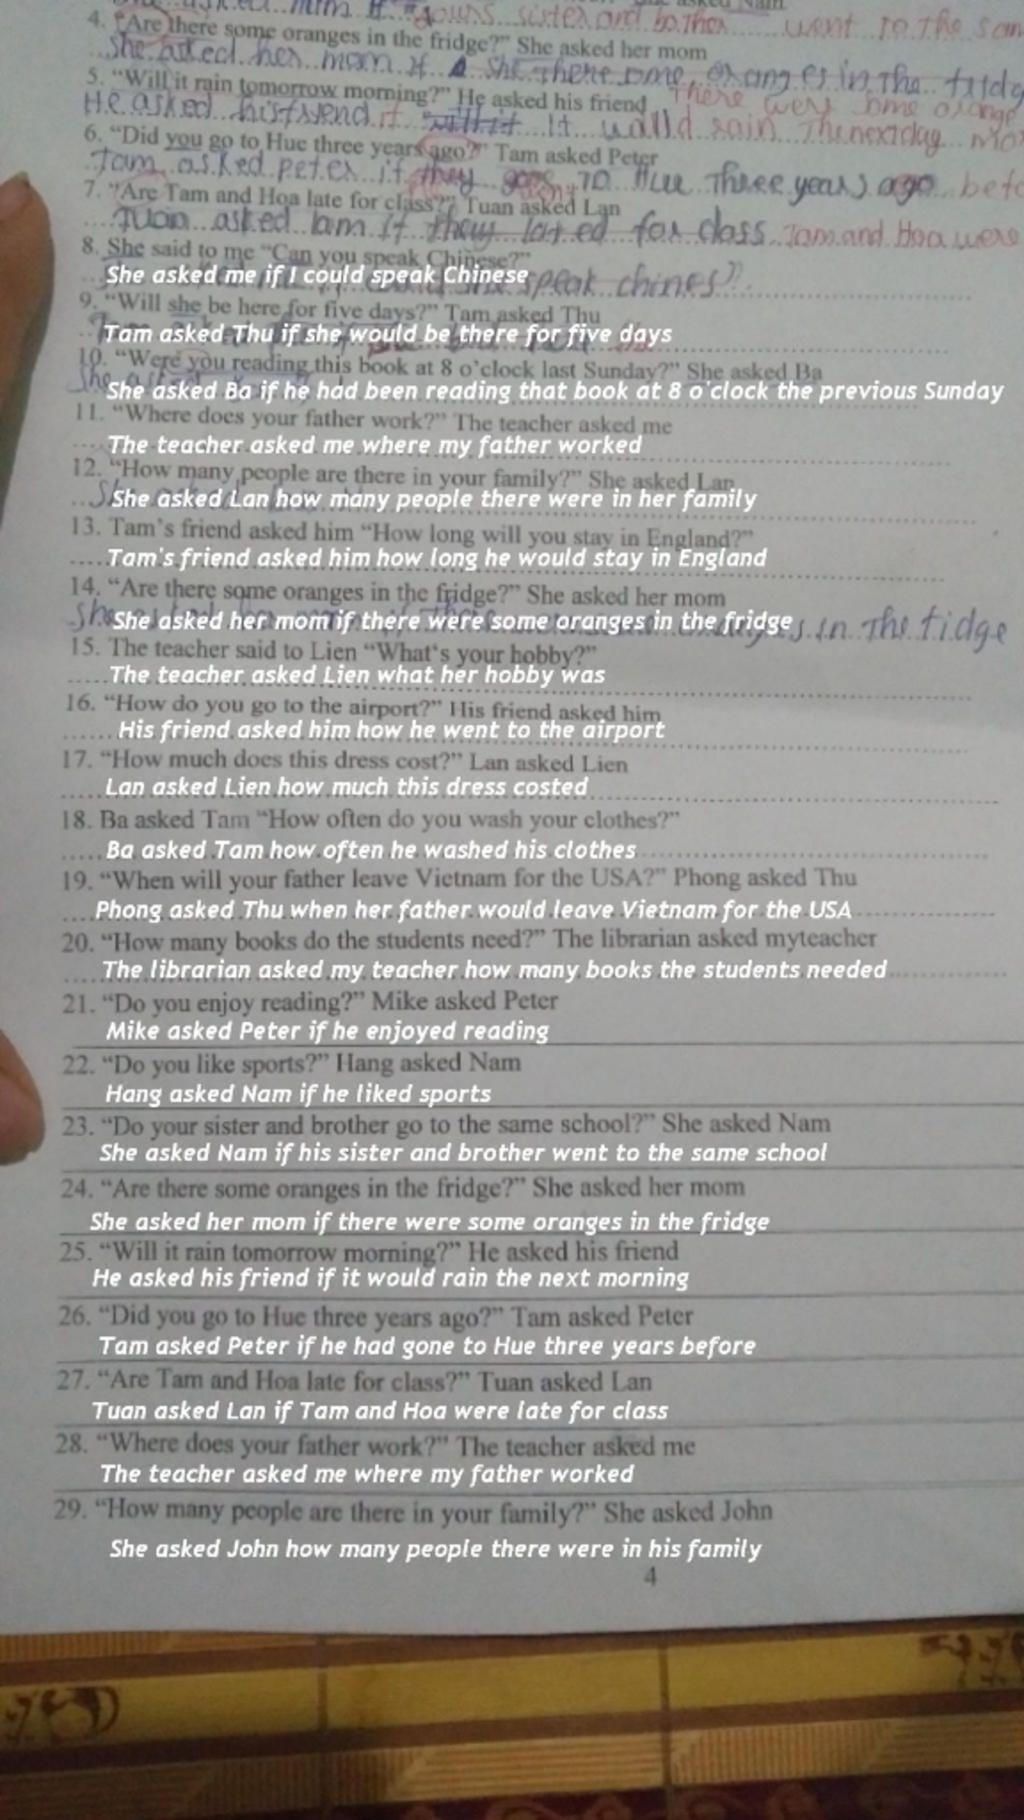 4. "Are there some oranges in the fridge?" She asked her mom
She asked her mom if she there some oranges in the fridg
5. "Will it rain tomorrow morning?" He asked his friend There were some orange
He asked his friend if it would rain The next day mo
6. "Did you go to Hue three years ago?" Tam asked Peter
Tam asked peter if they gone to Hue Three years ago befo
7. "Are Tam and Hoa late for class?" Tuan asked Lan
Tuan asked lam if they for class Tam and Hoa were
8. She said to me "Can you speak Chinese?"
She asked me if I could speak Chinese speak chines
9. "Will she be here for five days?" Tam asked Thu
Tam asked Thu if she would be there for five days
10. "Were you reading this book at 8 o'clock last Sunday?" She asked Ba
She asked Ba if he had been reading that book at 8 o'clock the previous Sunday
11. "Where does your father work?" The teacher asked me
The teacher asked me where my father worked
12. "How many people are there in your family?" She asked Lan
She asked Lan how many people there were in her family
13. Tam's friend asked him "How long will you stay in England?"
Tam's friend asked him how long he would stay in England
14. "Are there some oranges in the fridge?" She asked her mom
She asked her mom if there were some oranges in the fridge in The fidge
15. The teacher said to Lien "What's your hobby?"
The teacher asked Lien what her hobby was
16. "How do you go to the airport?" His friend asked him
His friend asked him how he went to the airport
17. "How much does this dress cost?" Lan asked Lien
Lan asked Lien how much this dress costed
18. Ba asked Tam "How often do you wash your clothes?"
Ba asked Tam how often he washed his clothes
19. "When will your father leave Vietnam for the USA?" Phong asked Thu
Phong asked Thu when her father would leave Vietnam for the USA
20. "How many books do the students need?" The librarian asked myteacher
The librarian asked my teacher how many books the students needed
21. "Do you enjoy reading?" Mike asked Peter
Mike asked Peter if he enjoyed reading
22. "Do you like sports?" Hang asked Nam
Hang asked Nam if he liked sports
23. "Do your sister and brother go to the same school?" She asked Nam
She asked Nam if his sister and brother went to the same school
24. "Are there some oranges in the fridge?" She asked her mom
She asked her mom if there were some oranges in the fridge
25. "Will it rain tomorrow morning?" He asked his friend
He asked his friend if it would rain the next morning
26. "Did you go to Hue three years ago?" Tam asked Peter
Tam asked Peter if he had gone to Hue three years before
27. "Are Tam and Hoa late for class?" Tuan asked Lan
Tuan asked Lan if Tam and Hoa were late for class
28. "Where does your father work?" The teacher asked me
The teacher asked me where my father worked
29. "How many people are there in your family?" She asked John
She asked John how many people there were in his family
4